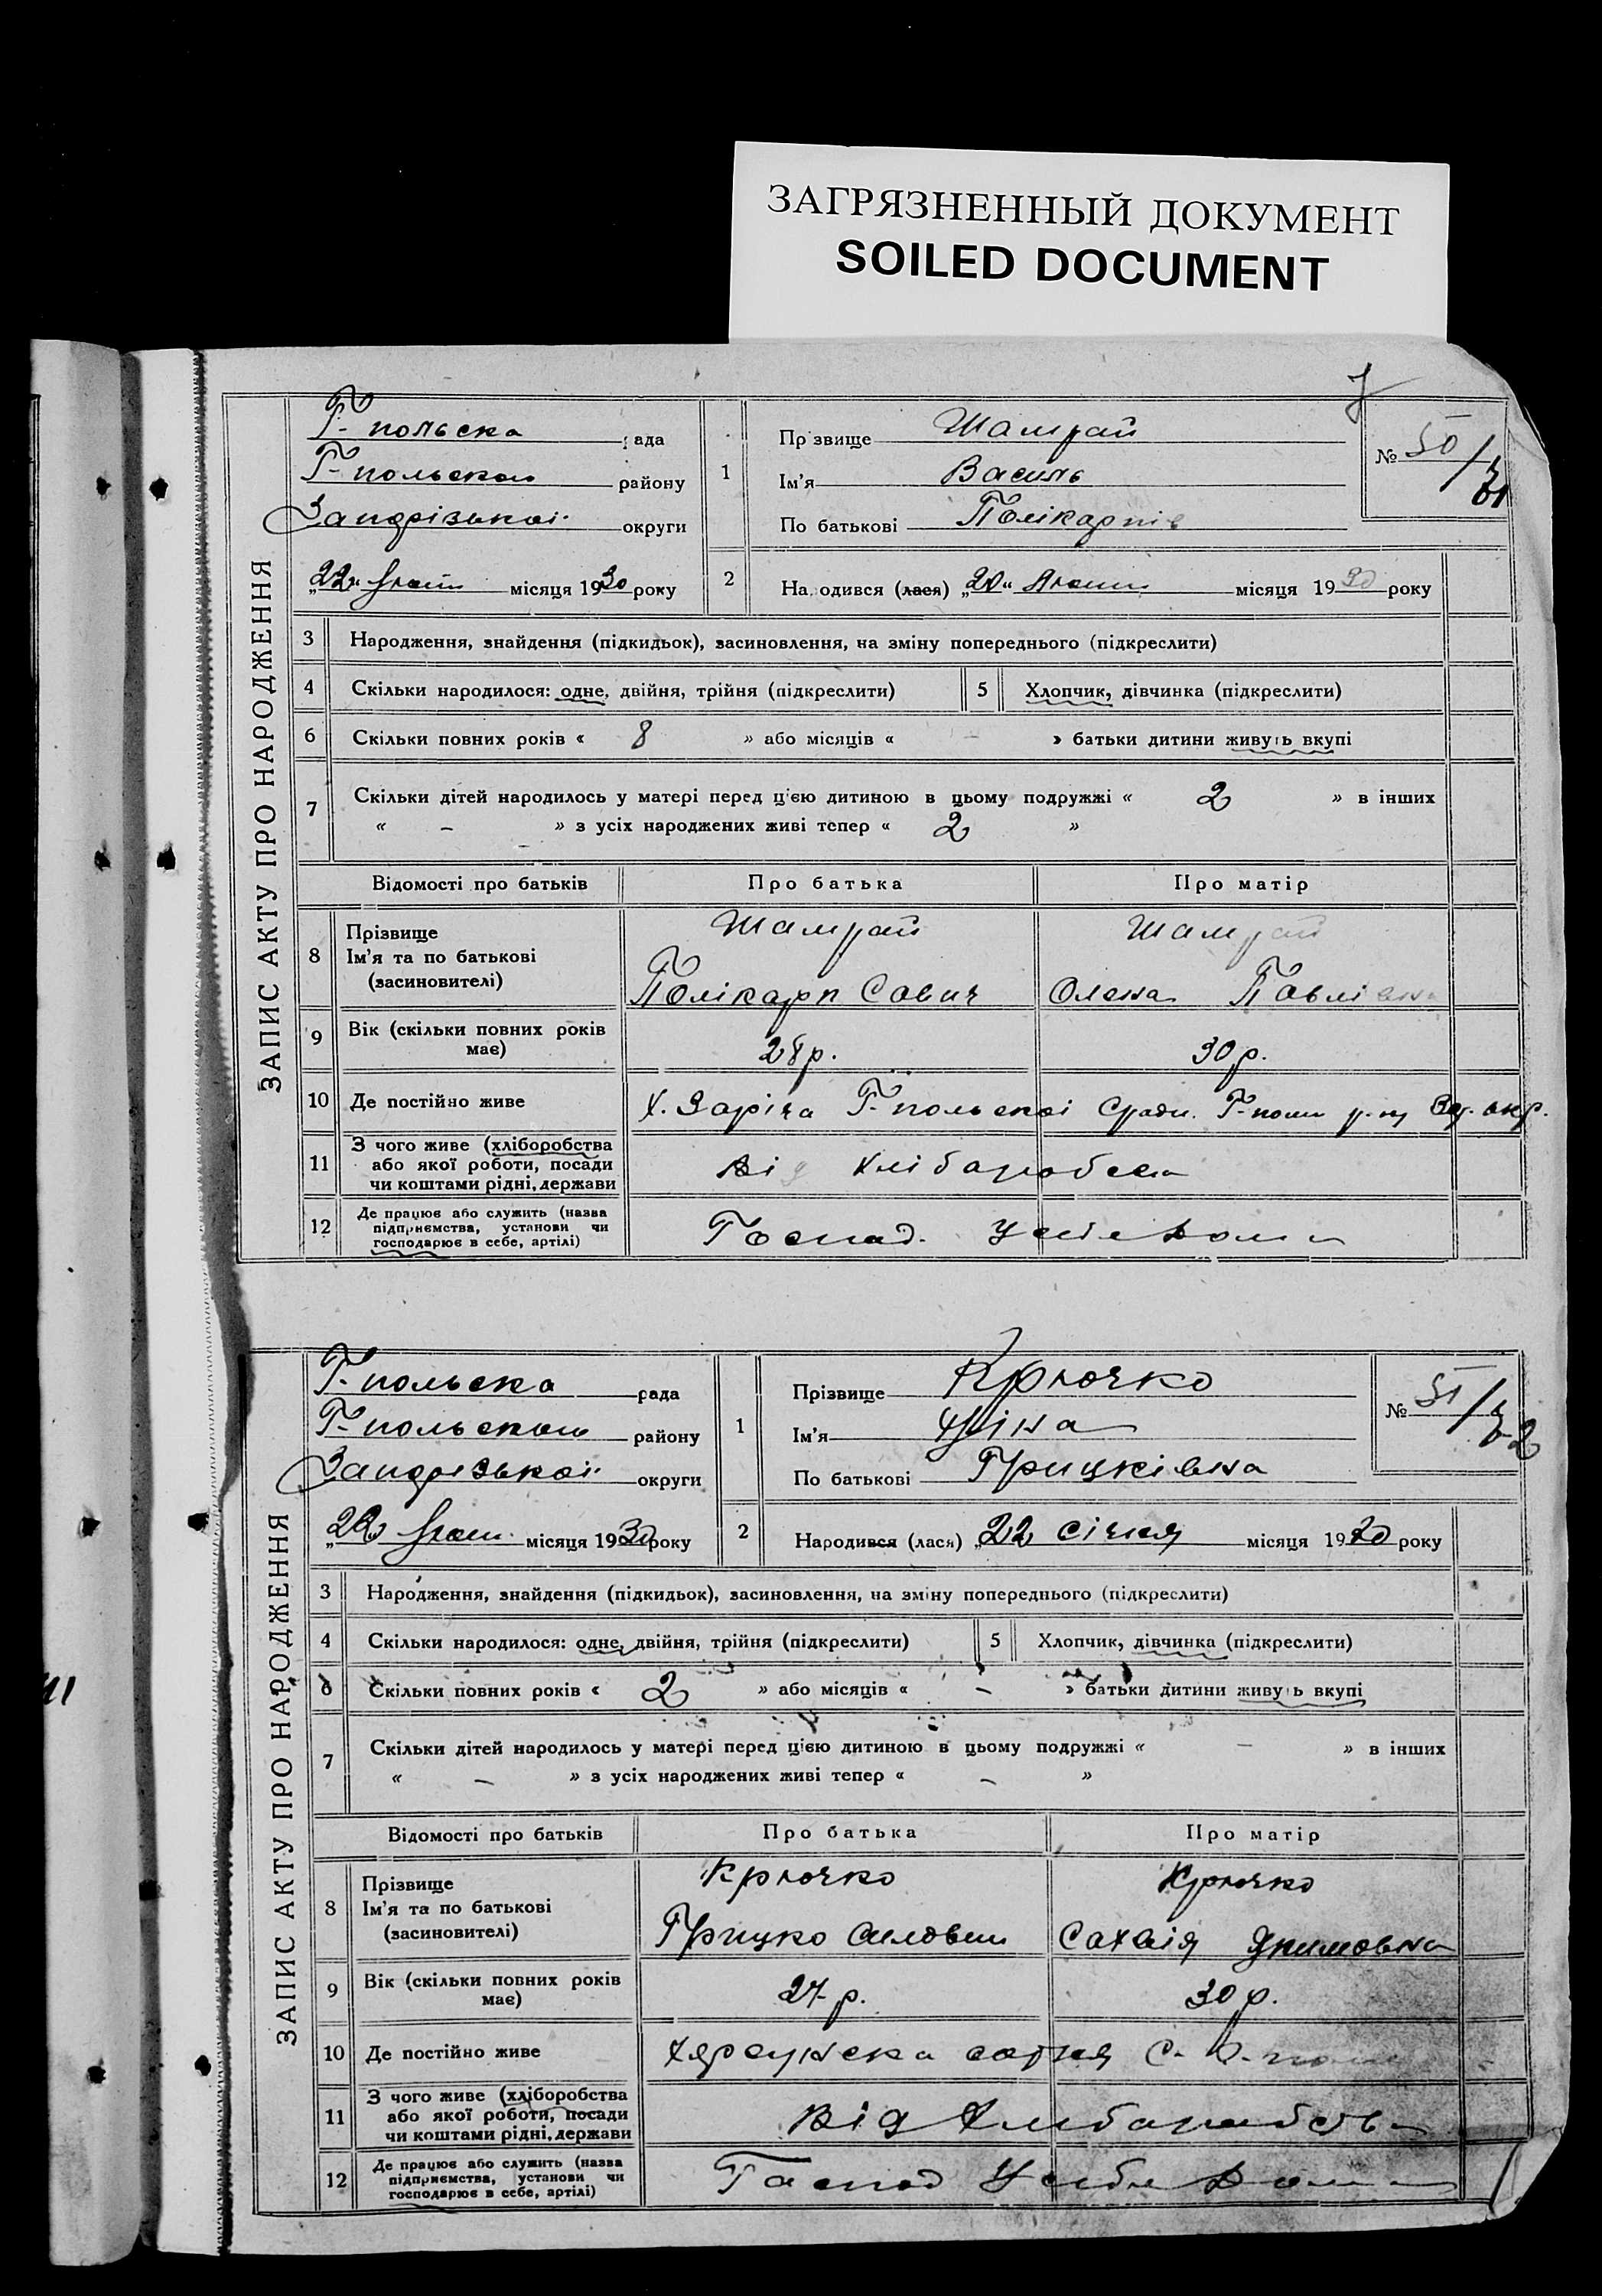 ЗАГРЯЗНЕННЫЙ ДОКУМЕНТ
SOILED DOCUMENT
ЗАПИС АКТУ ПРО НАРОДЖЕННЯ
Г-польска рада
Г-польского району
округи
22 місяця 1930 року
1
Прізвище Шамрай
Ім'я Василь
По батькові Полікарпів
№ 50/
2 Народився (лася) „20“ місяця 1930 року
3 Народження, знайдення (підкидьок), засиновлення, на зміну попереднього (підкреслити)
4 Скільки народилося: одне, двійня, трійня (підкреслити) 5 Хлопчик, дівчинка (підкреслити)
6 Скільки повних років « 8 » або місяців « – » батьки дитини живуть вкупі
7 Скільки дітей народилось у матері перед цією дитиною в цьому подружжі « 2 » в інших
« – » з усіх народжених живі тепер « 2 »
Відомості про батьків Про батька Про матір
8 Прізвище Шамрай Шамрай
Ім'я та по батькові
(засновителі) Полікарп Савич Олена Павлівна
9 Вік (скільки повних років має) 28 р. 30 р.
10 Де постійно живе Х. Заріча Г-польскоі
11 З чого живе (хліборобства або якої роботи, посади чи коштами рідні, держави Від хліборобства
12 Де працює або служить (назва підприємства, установи чи господарює в себе, артілі) Господ. у себе дома
ЗАПИС АКТУ ПРО НАРОДЖЕННЯ
Г-польска рада
Г-польского району
округи
22 місяця 1930 року
1
Прізвище Крючко
Ім'я
По батькові Грицківна
№ 51/
2 Народився (лася) „22 січня місяця 1930 року
3 Народження, знайдення (підкидьок), засиновлення, на зміну попереднього (підкреслити)
4 Скільки народилося: одне, двійня, трійня (підкреслити) 5 Хлопчик, дівчинка (підкреслити)
6 Скільки повних років « 2 » або місяців « – » батьки дитини живуть вкупі
7 Скільки дітей народилось у матері перед цією дитиною в цьому подружжі « – » в інших
« – » з усіх народжених живі тепер « – »
Відомості про батьків Про батька Про матір
8 Прізвище Крючко Крючко
Ім'я та по батькові
(засиновителі) Грицко Якимовна
9 Вік (скільки повних років має) 27 р. 30 р.
10 Де постійно живе
11 З чого живе (хліборобства або якої роботи, посади чи коштами рідні, держави Від хліборобства
12 Де працює або служить (назва підприємства, установи чи господарює в себе, артілі) Господ у себе дома